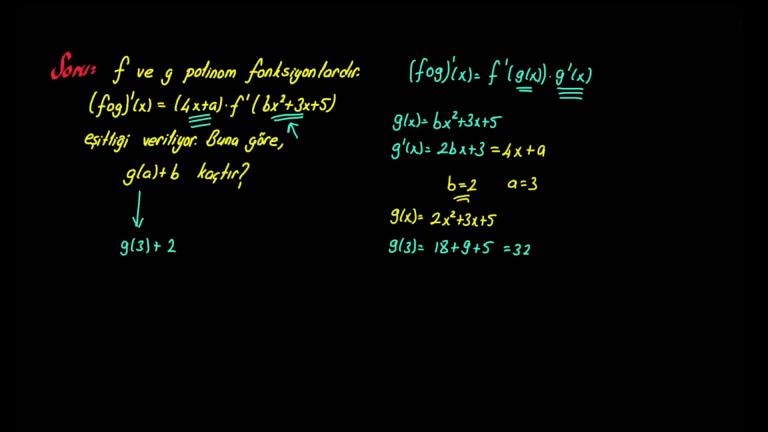 Soru: f ve g polinom fonksiyonlardır.
(fog)'(x) = (4x+a)·f'(bx²+3x+5)
eşitliği veriliyor. Buna göre,
g(a)+b kaçtır?
g(3)+2
(fog)'(x) = f'(g(x))·g'(x)
g(x) = bx²+3x+5
g'(x) = 2bx+3 = 4x+a
b=2 a=3
g(x) = 2x²+3x+5
g(3) = 18+9+5 = 32